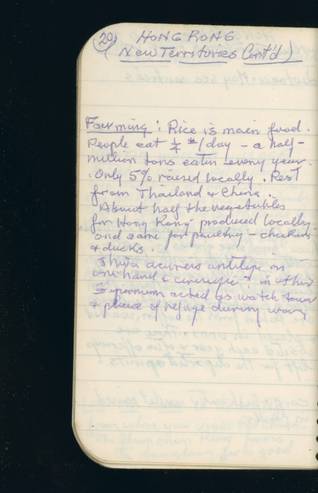 20
HONG KONG
(New Territories Cont'd)
Farming: Rice is main food.
People eat 1/4 #/day - a half-
million tons eaten every year.
Only 5% raised locally. Rest
from Thailand & China.
About half the vegetables
for Hong Kong produced locally
and same for poultry - chickens
& ducks.
on
one hand & in
acted as watch tower
& place of refuge during wars